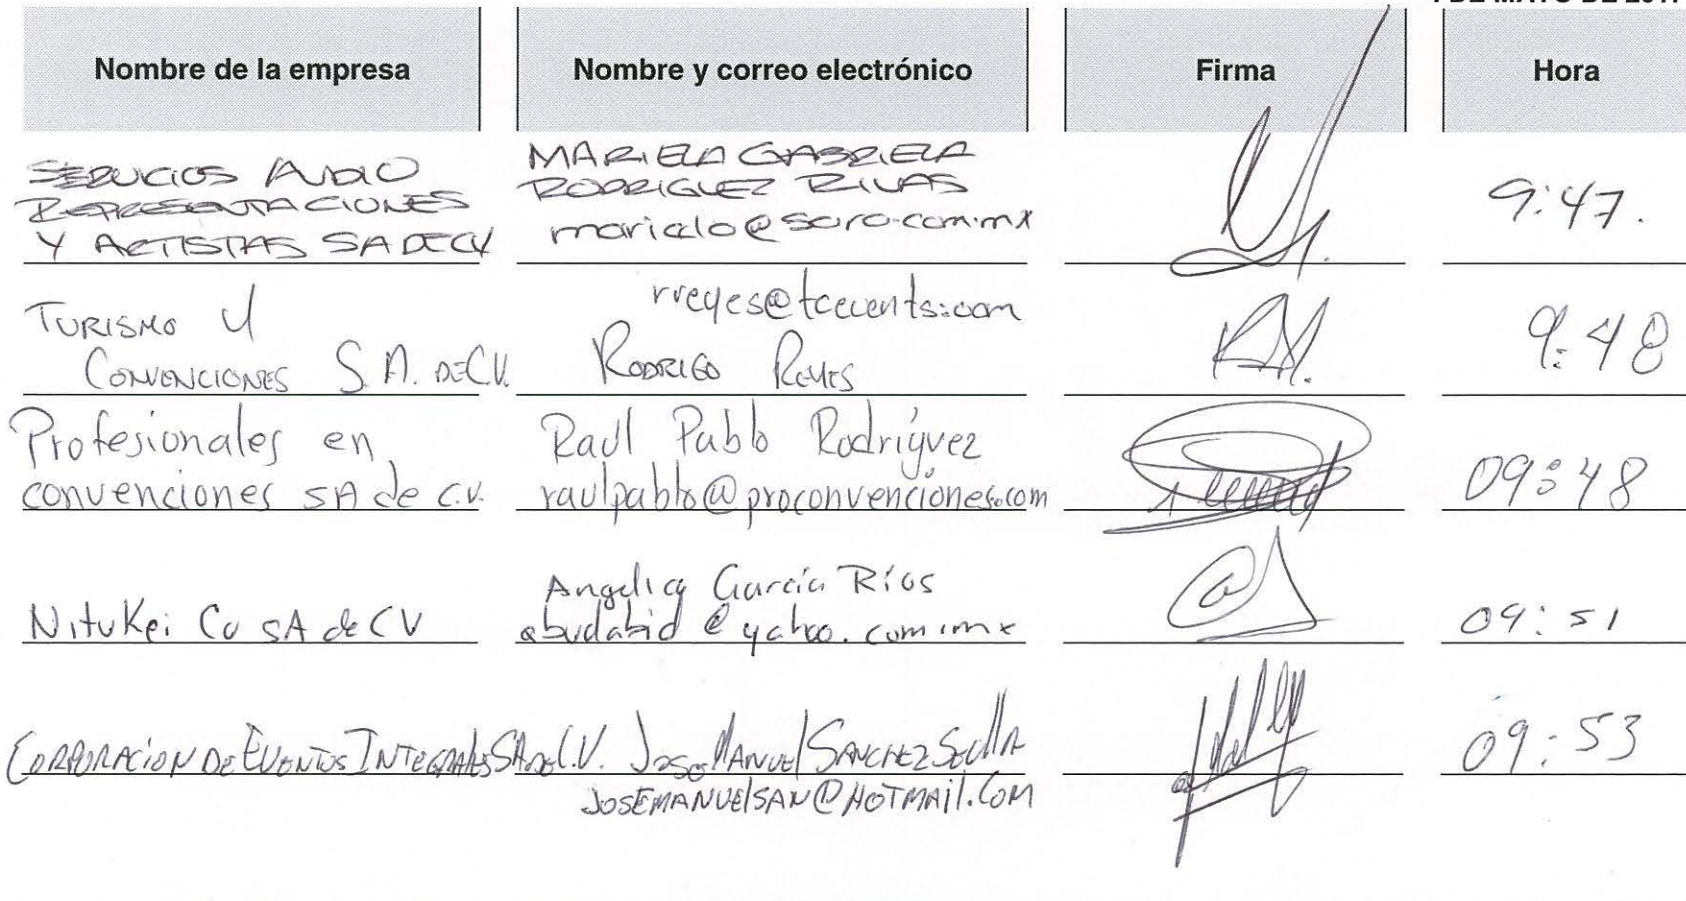 DE MAYO DE 2017
Nombre de la empresa Nombre y correo electrónico Firma Hora
SERVICIOS AUDIO
REPRESENTACIONES
Y ARTISTAS SA DE CV
MARIELA GABRIELA
RODRIGUEZ RIVAS
marielo@saro.com.mx
9:47.
TURISMO Y
CONVENCIONES S.A. DE C.V.
rreyes@tcevents.com
RODRIGO REYES
9:48
Profesionales en
convenciones SA de C.V.
Raul Pablo Rodríguez
raulpablo@proconvenciones.com
09:48
NituKei Co SA de CV
Angelica García Ríos
abudabid@yahoo.com.mx
09:51
CORPORACION DE EVENTOS INTEGRALES SA DE C.V.
JOSE MANUEL SANCHEZ
JOSEMANUELSAN@HOTMAIL.COM
09:53